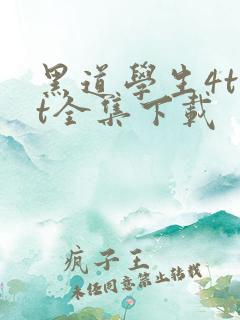 黑道學生4t
t全集下載
疯子王
未经同意禁止转载